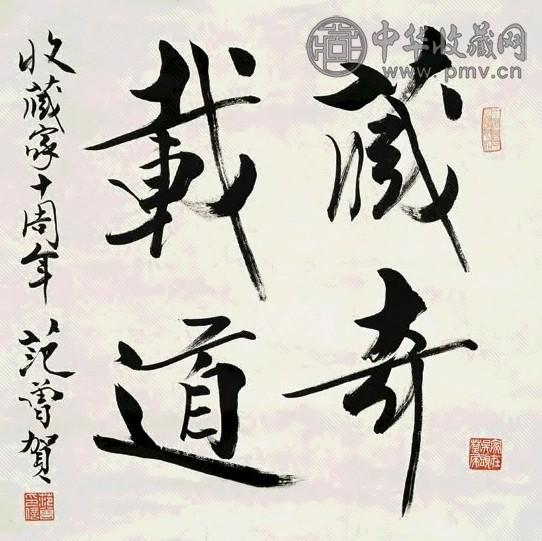 藏奇
載道
收藏家十周年 范曾賀
中华收藏网
www.pmv.cn